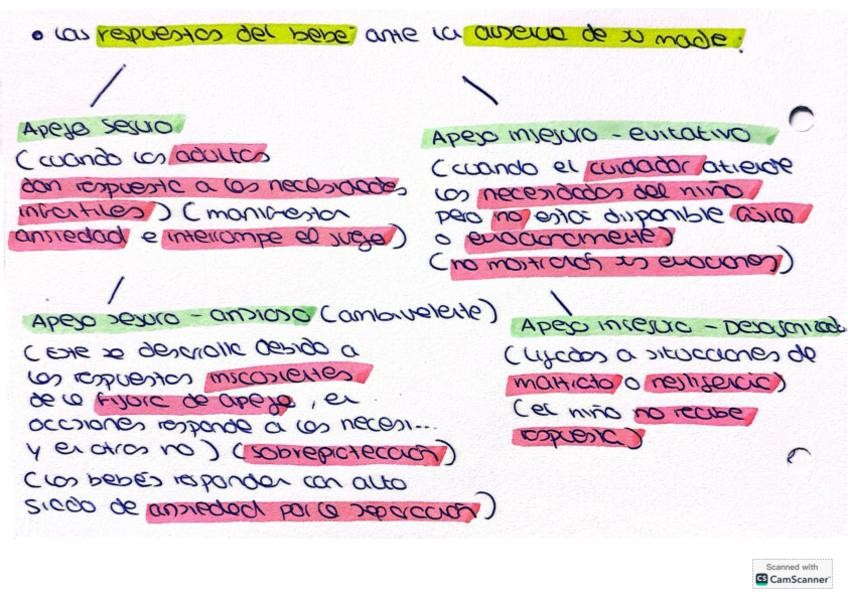 • Las respuestas del bebé ante la ausencia de su madre.
Apego seguro
(cuando los adultos
dan respuesta a las necesidades
infantiles) (manifiestan
ansiedad e interrumpe el juego)
Apego inseguro - evitativo
(cuando el cuidador atiende
las necesidades del niño
pero no estar disponible
o emocionalmente)
(no mostrarán sus emociones)
Apego seguro - ansioso (ambivalente)
(Este se desarrolla debido a
las respuestas
de la figura de apego, en
occiones responde a las necesi...
y en otras no) (sobreprotección)
(los bebés responden con alto
grado de ansiedad por la separación)
Apego inseguro - Desorganizado
(ligados a situaciones de
maltrato o negligencia)
(el niño no recibe
respuesta)
Scanned with
CS CamScanner